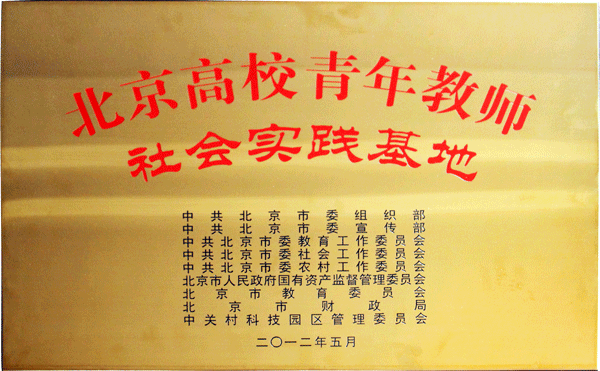 北京高校青年教师
社会实践基地
中共北京市委组织部
中共北京市委宣传部
中共北京市委教育工作委员会
中共北京市委社会工作委员会
中共北京市委农村工作委员会
北京市人民政府国有资产监督管理委员会
北京市教育委员会
北京市财政局
中关村科技园区管理委员会
二〇一二年五月